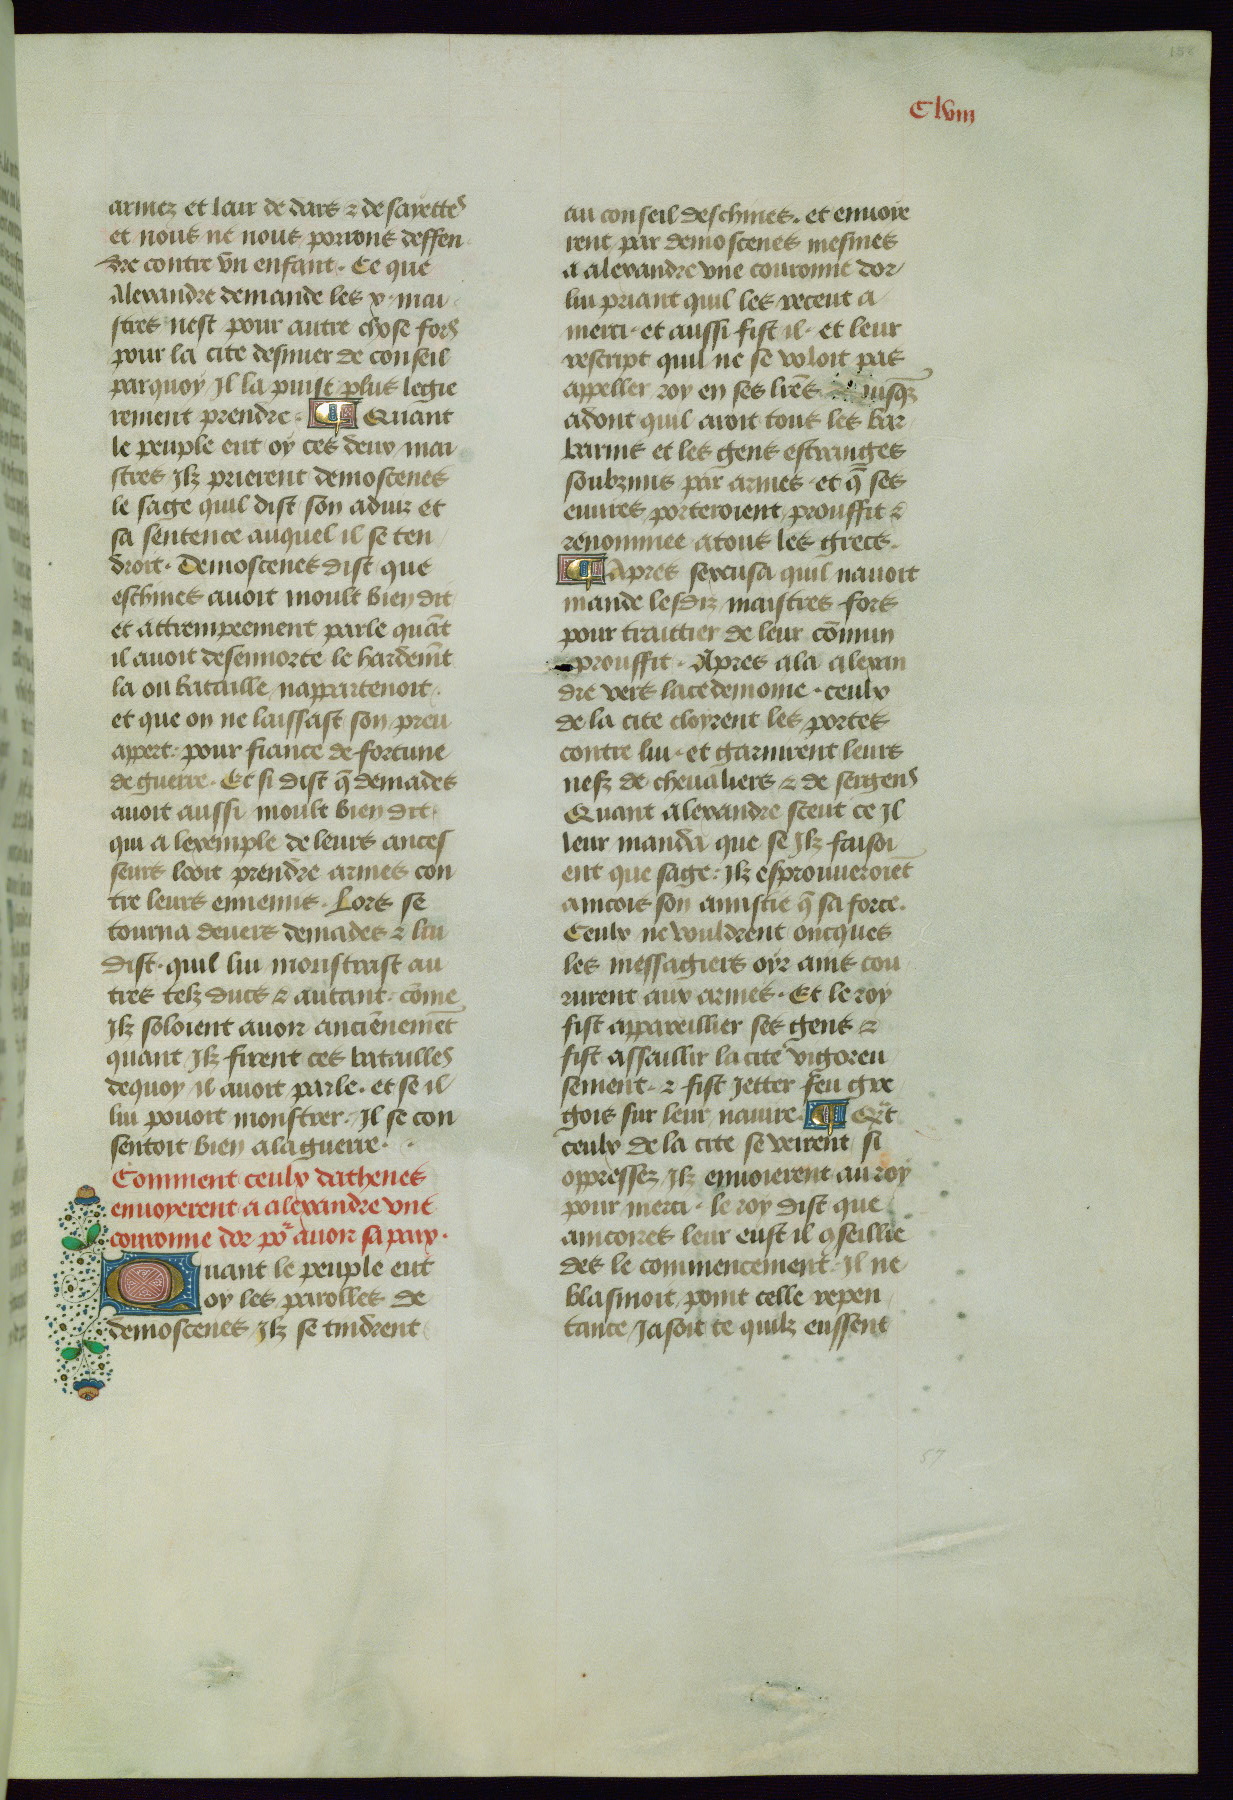 Clviij
armez et lair de dars & de sayettes
et nous ne nous porions deffen
dre contre vn enfant. Ce que
Alexandre demande les x. mai
stres nest pour autre chose fors
pour la cite desnuer de conseil
parquoy Jl la puist plus legie
rement prendre. ¶ Quant
le peuple eut oy ces deux mai
stres Jlz prierent demostenes
le sage quil dist son aduiz et
sa sentence auquel il se ten
droit. Demostenes dist que
eschines auoit moult bien dit
et attrempeement parle quāt
il auoit desennorte le hardemēt
la ou bataille nappartenoit.
et que on ne laissast son preu
appert. pour fiance de fortune
de guerre. Et si dist q̄ demades
auoit aussi moult bien dit
qui a lexemple de leurs ances
seurs looit prendre armes con
tre leurs ennemis. Lors se
tourna deuers demades & lui
dist. quil lui monstrast au
tres telz ducs & autant. cōme
Jlz soloient auoir anciēnemēt
quant Jlz firent ces batailles
dequoy il auoit parle. et se il
lui pouoit monstrer. Jl se con
sentoit bien a la guerre.
Comment ceulx dathenes
enuoyerent a alexandre vne
couronne dor po᷑ auoir sa paix.
Quant le peuple eut
oy les parolles de
demostenes Jlz se tindrent
au conseil deschines. et enuoie
rent par demostenes mesmes
a alexandre vne couronne dor
lui priant quil les receut a
merci. et aussi fist il. et leur
rescript quil ne se voloit pas
appeller roy en ses lr̄es iusq̄z
adont quil aroit tous les bar
barins et les gens estranges
soubzmis par armes. et q̄ ses
euures porteroient prouffit &
renommee a tous les grecs.
¶ Apres sexcusa quil nauoit
mande lesdiz maistres fors
pour traittier de leur cōmun
prouffit. Apres ala alexan
dre vers lacedemone. ceulx
de la cite cloyrent les portes
contre lui. et garnirent leurs
nefz de cheualiers & de sergens
Quant alexandre sceut ce Jl
leur manda que se Jlz faisoi
ent que sage: Jlz esprouueroiēt
aincois son amistie q̄ sa force.
Ceulx ne vouldrent oncques
les messagiers oyr ains cou
rurent aux armes. Et le roy
fist appareillier ses gens &
fist assaillir la cite vigoreu
sement. & fist Jetter feu gre
gois sur leur nauire. ¶ Qr̄t
ceulx de la cite se veirent si
oppressez Jlz enuoierent au roy
pour merci. le roy dist que
aincoires leur eust il ꝯseillie
des le commencement. Jl ne
blasmoit point celle repen
tance / Ja soit ce quilz eussent
57